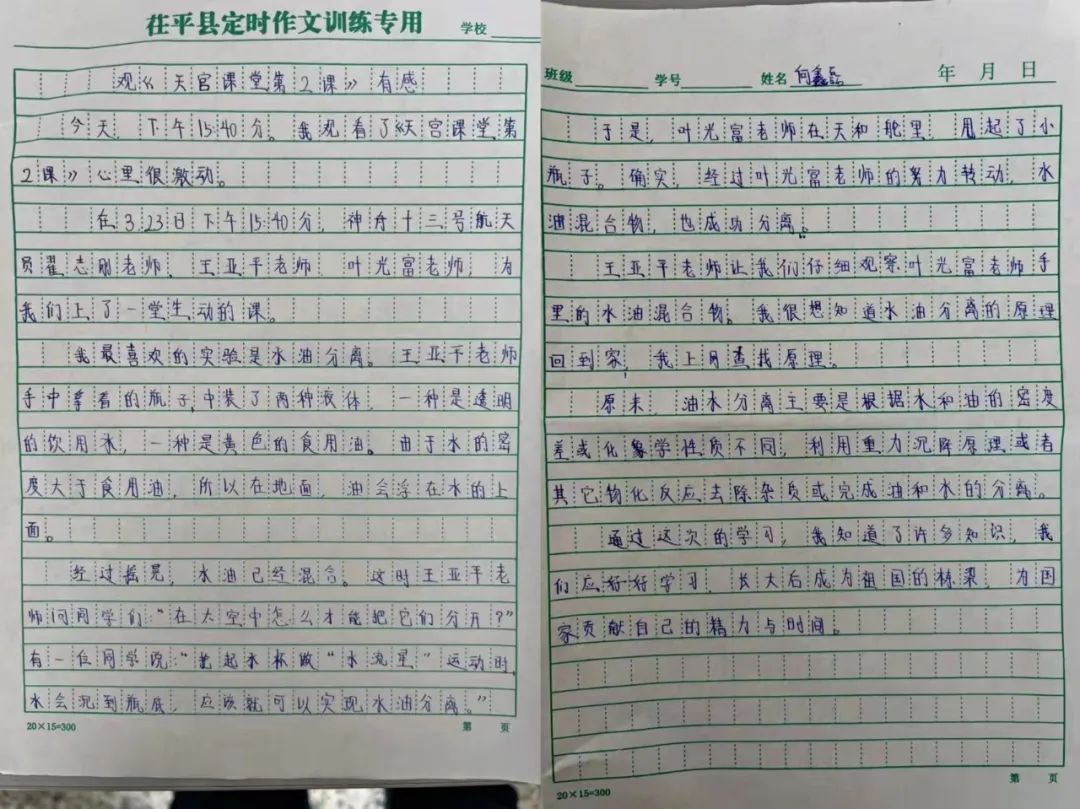 茌平县定时作文训练专用
学校
观《天宫课堂第2课》有感
今天,下午15:40分。我观看了《天宫课堂第
2课》心里很激动。
在3.23日下午15:40分,神舟十三号航天
员翟志刚老师、王亚平老师、叶光富老师,为
我们上了一堂生动的课。
我最喜欢的实验是水油分离。王亚平老师
手中拿着的瓶子,中装了两种液体,一种是透明
的饮用水,一种是黄色的食用油。由于水的密
度大于食用油,所以在地面,油会浮在水的上
面。
经过摇晃,水油已经混合。这时王亚平老
师问同学们:“在太空中怎么才能把它们分开?”
有一位同学说:“甩起水杯做“水流星”运动时,
水会沉到瓶底,应该就可以实现水油分离。”
20×15=300
第 页
班级
学号
姓名 向鑫磊
年 月 日
于是,叶光富老师在天和舱里,甩起了小
瓶子。确实,经过叶光富老师的努力转动,水
油混合物,也成功分离。
王亚平老师让我们仔细观察叶光富老师手
里的水油混合物。我很想知道水油分离的原理
回到家,我上网查找原理。
原来,油水分离主要是根据水和油的密度
差或化学性质不同,利用重力沉降原理或者
其它物化反应去除杂质或完成油和水的分离。
通过这次的学习,我知道了许多知识,我
们应好好学习,长大后成为祖国的栋梁,为国
家贡献自己的精力与时间。
第 页
20×15=300